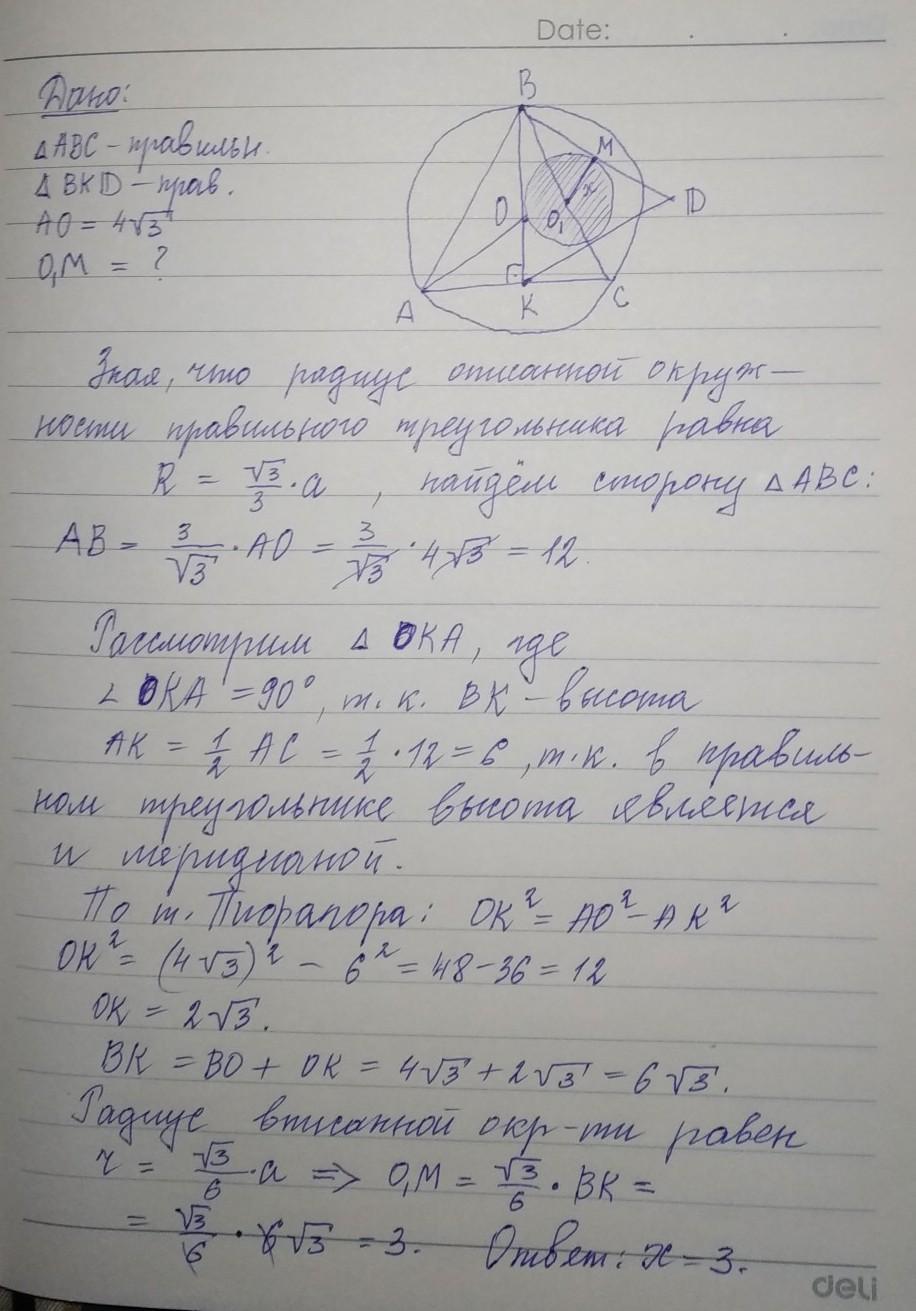 Date: . .
Дано:
△ABC – правильн.
△BKD – прав.
AO = 4√3
O₁M = ?
B
M
D
O
O₁
x
A
K
C
Зная, что радиус описанной окруж-
ности правильного треугольника равна
R = √3/3 · a , найдём сторону △ABC:
AB = 3/√3 · AO = 3/√3 · 4√3 = 12.
Рассмотрим △ OKA, где
∠OKA = 90°, т.к. BK – высота
AK = 1/2 AC = 1/2 · 12 = 6, т.к. в правиль-
ном треугольнике высота является
и меридианой.
По т. Пифагора: OK² = AO² – AK²
OK² = (4√3)² – 6² = 48 – 36 = 12
OK = 2√3.
BK = BO + OK = 4√3 + 2√3 = 6√3.
Радиус вписанной окр-ти равен
r = √3/6 · a => O₁M = √3/6 · BK =
= √3/6 · 6√3 = 3. Ответ: x = 3.
deli